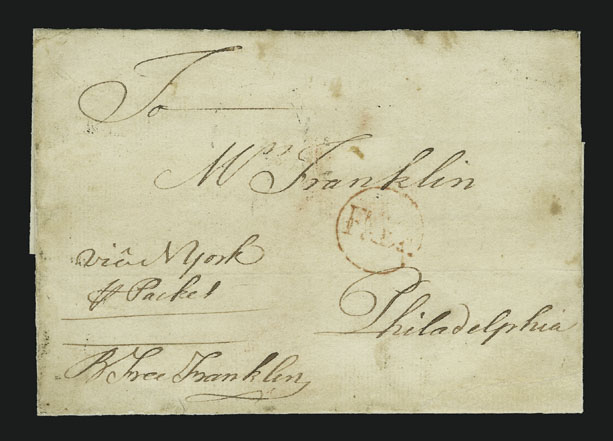 To
Mrs Franklin
FREE
viâ N York
⅌ Packet
Philadelphia
B Free Franklin